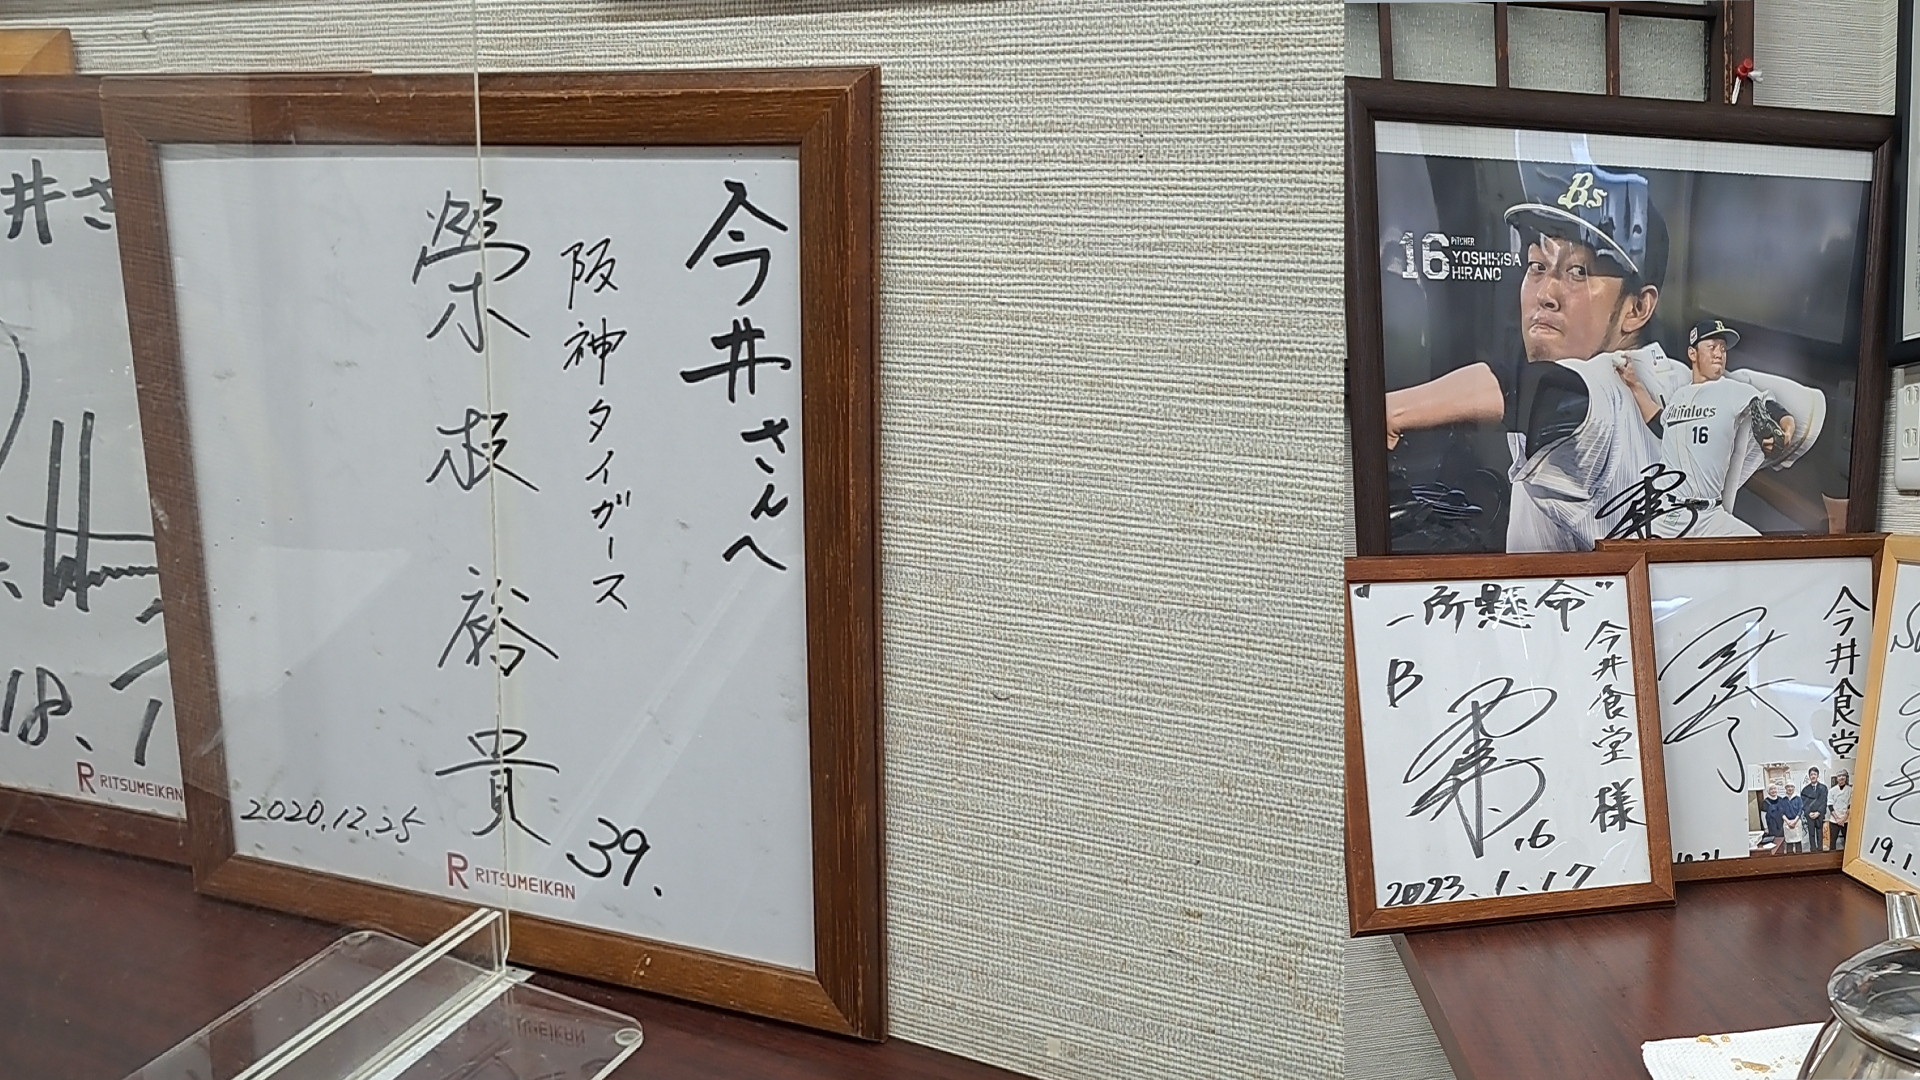 井さ
18.1
RITSUMEIKAN
今井さんへ
阪神タイガース
榮枝裕貴
39.
2020.12.25
R RITSUMEIKAN
Bs
16
PITCHER
YOSHIHISA
HIRANO
Buffaloes
16
"一所懸命"
今井食堂様
B
.16
2023.1.17
今井食堂
19.1.